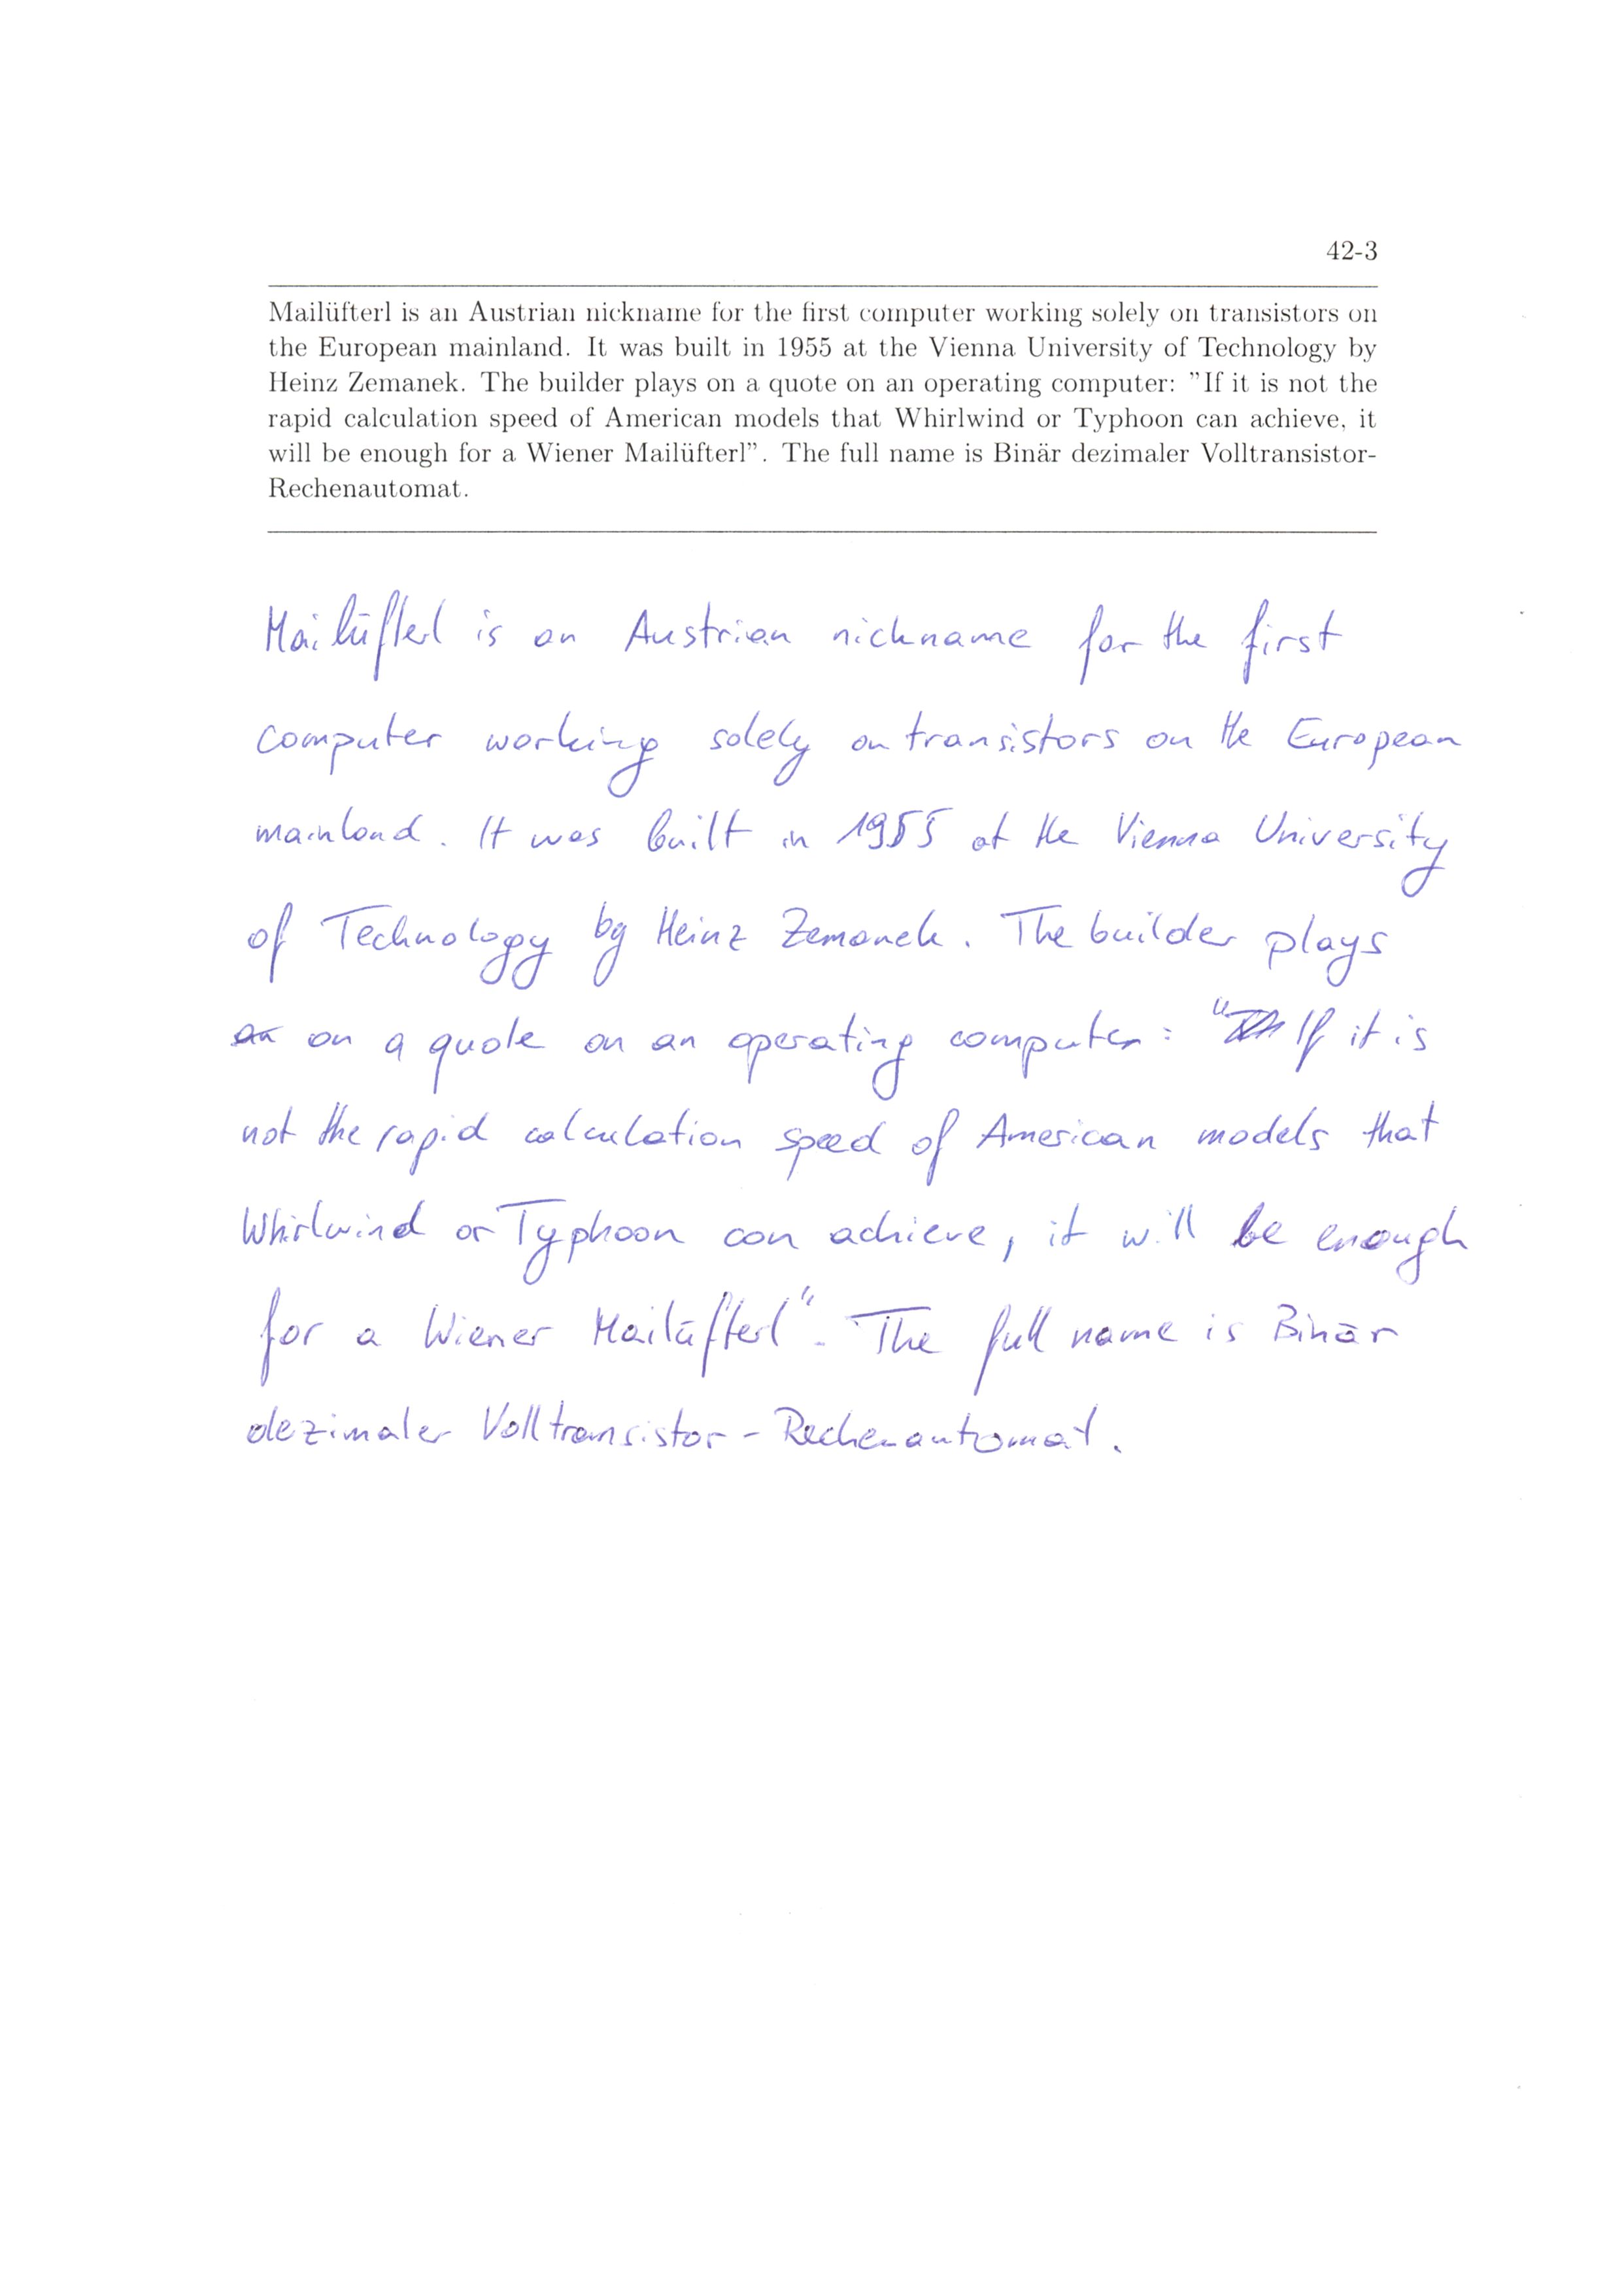 42-3
Mailüfterl is an Austrian nickname for the first computer working solely on transistors on
the European mainland. It was built in 1955 at the Vienna University of Technology by
Heinz Zemanek. The builder plays on a quote on an operating computer: "If it is not the
rapid calculation speed of American models that Whirlwind or Typhoon can achieve, it
will be enough for a Wiener Mailüfterl". The full name is Binär dezimaler Volltransistor-
Rechenautomat.
Mailüfterl is an Austrian nickname for the first
computer working solely on transistors on the European
mainland. It was built in 1955 at the Vienna University
of Technology by Heinz Zemanek. The builder plays
on a quote on an operating computer: "If it is
not the rapid calculation speed of American models that
Whirlwind or Typhoon can achieve, it will be enough
for a Wiener Mailüfterl". The full name is Binär
dezimaler Volltransistor-Rechenautomat.